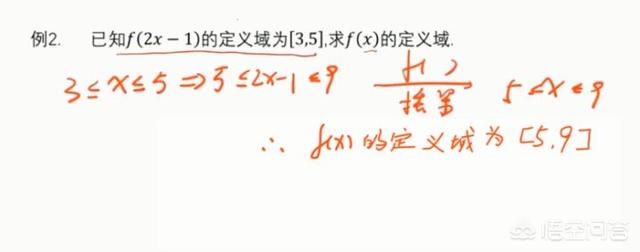 例2. 已知f(2x − 1)的定义域为[3,5],求f(x)的定义域.
3 ≤ x ≤ 5 ⇒ 5 ≤ 2x-1 ≤ 9 f( ) 括号 5 ≤ x ≤ 9
∴ f(x) 的定义域为 [5,9]
悟空问答